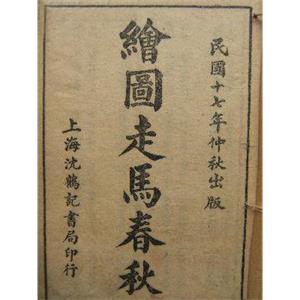 民國十七年仲秋出版
繪圖走馬春秋
上海沈鶴記書局印行